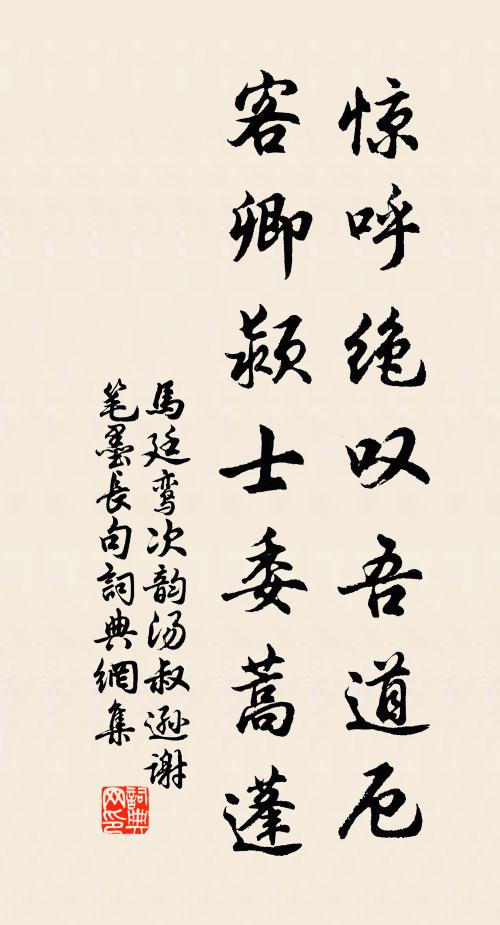 惊呼绝叹吾道厄
客卿颍士委蒿蓬
馬廷鸾次韵汤叔逊谢
笔墨長句詞典網集
詞典网印